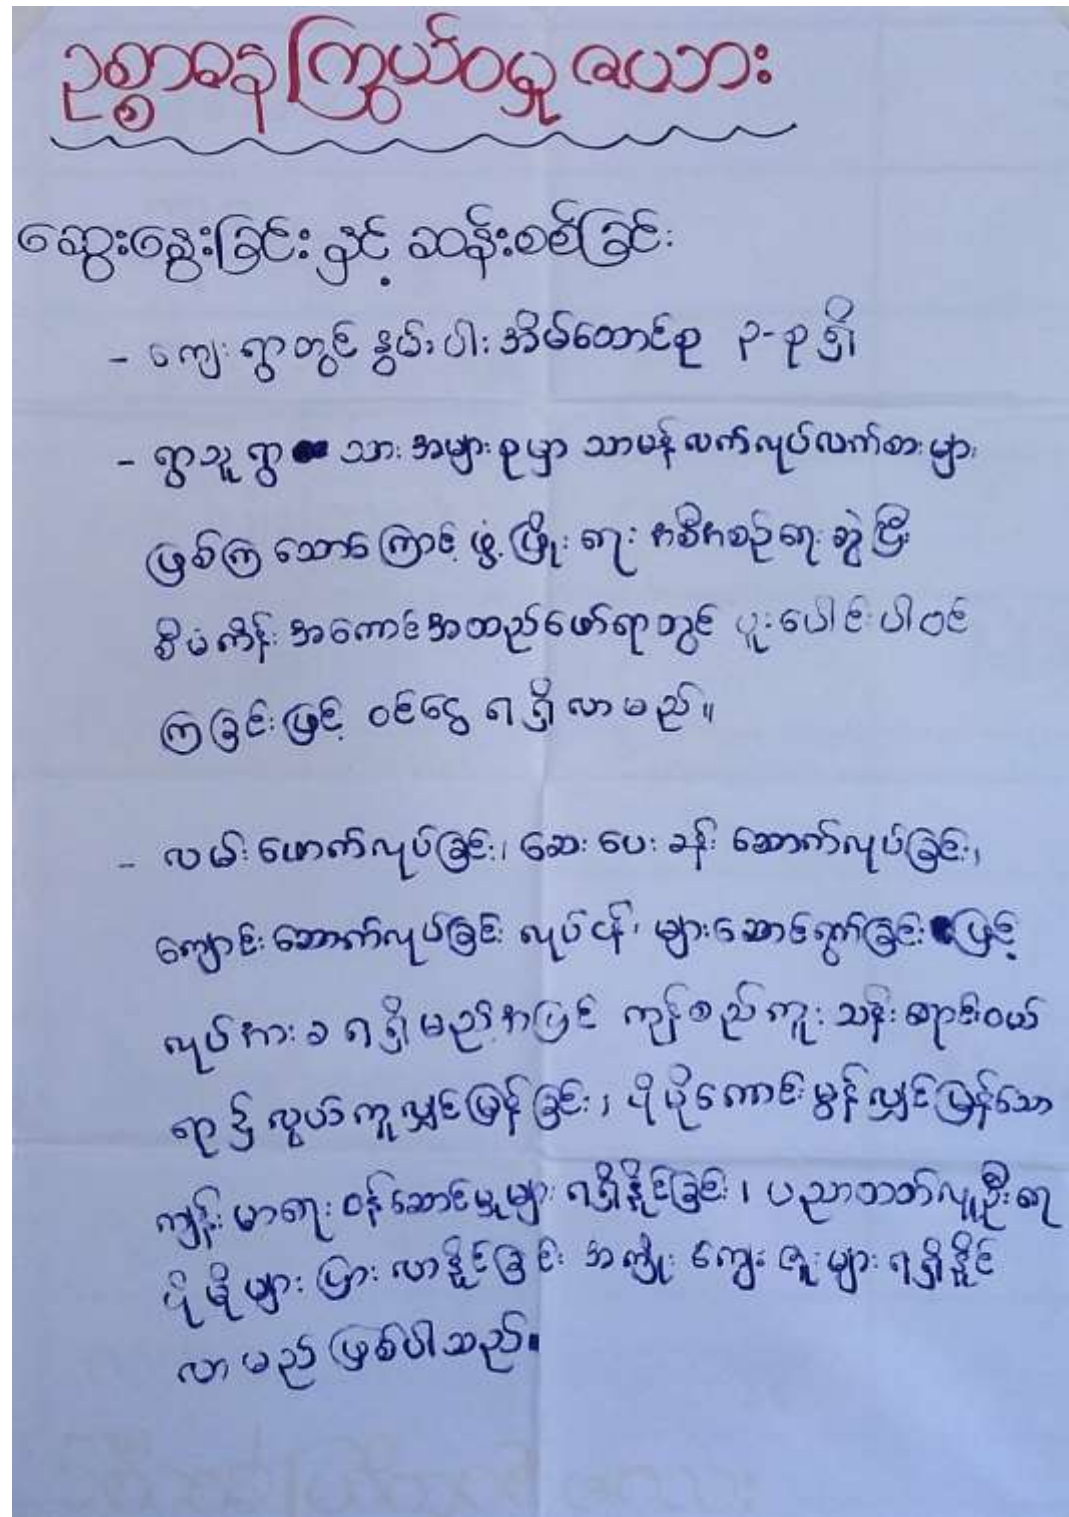 ဥစ္စာဓနကြွယ်ဝမှုဇယား
ဆွေးနွေးခြင်းနှင့် ဆန်းစစ်ခြင်း
- ကျေးရွာတွင် နွမ်းပါးအိမ်ထောင်စု ၃-စုရှိ
- ရွာသူရွာ သားအများစုမှာ သာမန်လက်လုပ်လက်စားများ
ဖြစ်ကြသောကြောင့် ဖွံ့ဖြိုးရေး အစီအစဉ်ရေးဆွဲပြီး
စီမံကိန်းအကောင်အထည်ဖော်ရာတွင် ပူးပေါင်းပါဝင်
ကြခြင်းဖြင့် ဝင်ငွေ ရရှိလာမည်။
- လမ်းဖောက်လုပ်ခြင်း၊ ဆေးပေးခန်း ဆောက်လုပ်ခြင်း၊
ကျောင်းဆောက်လုပ်ခြင်း လုပ်ငန်းများဆောင်ရွက်ခြင်းဖြင့်
လုပ်အားခ ရရှိမည့်အပြင် ကုန်စည်ကူးသန်းရောင်းဝယ်
ရာ၌ လွယ်ကူလျှင်မြန်ခြင်း၊ ပိုမိုကောင်းမွန်လျှင်မြန်သော
ကျန်းမာရေးဝန်ဆောင်မှုများ ရရှိနိုင်ခြင်း၊ ပညာတတ်လူဦးရေ
ပိုမိုများပြားလာနိုင်ခြင်း အကျိုးကျေးဇူးများ ရရှိနိုင်
လာမည် ဖြစ်ပါသည်။